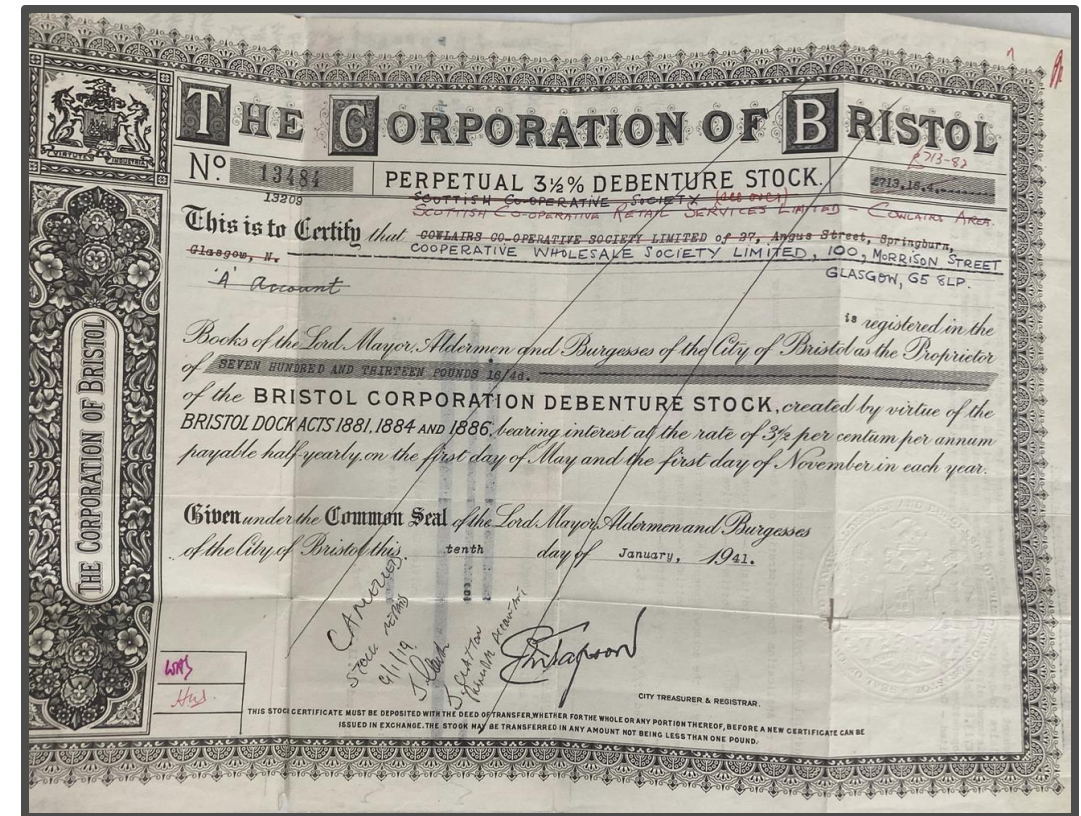 VIRTUTE INDUSTRIA
THE CORPORATION OF BRISTOL
£713-82
No. 13484
PERPETUAL 3½% DEBENTURE STOCK.
£713.16.4.
13209
SCOTTISH CO-OPERATIVE SOCIETY (see over)
SCOTTISH CO-OPERATIVE RETAIL SERVICES LIMITED - COWLAIRS AREA.
This is to Certify that COWLAIRS CO-OPERATIVE SOCIETY LIMITED of 27, Angus Street, Springburn,
Glasgow, N.
COOPERATIVE WHOLESALE SOCIETY LIMITED, 100, MORRISON STREET
GLASGOW, G5 8LP.
'A' Account
is registered in the
Books of the Lord Mayor, Aldermen and Burgesses of the City of Bristol as the Proprietor
of SEVEN HUNDRED AND THIRTEEN POUNDS 16/4d.
of the BRISTOL CORPORATION DEBENTURE STOCK, created by virtue of the
BRISTOL DOCK ACTS 1881, 1884 AND 1886, bearing interest at the rate of 3½ per centum per annum
payable half-yearly, on the first day of May and the first day of November in each year.
Given under the Common Seal of the Lord Mayor, Aldermen and Burgesses
of the City of Bristol this tenth day of January, 1941.
CANCELLED
STOCK
9/1/19
CITY TREASURER & REGISTRAR.
THIS STOCK CERTIFICATE MUST BE DEPOSITED WITH THE DEED OF TRANSFER, WHETHER FOR THE WHOLE OR ANY PORTION THEREOF, BEFORE A NEW CERTIFICATE CAN BE
ISSUED IN EXCHANGE. THE STOCK MAY BE TRANSFERRED IN ANY AMOUNT NOT BEING LESS THAN ONE POUND.
THE CORPORATION OF BRISTOL